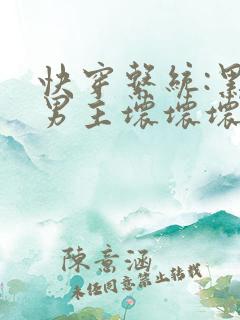 快穿系統:黑
男主壞壞壞
陳意涵
未經同意禁止轉載